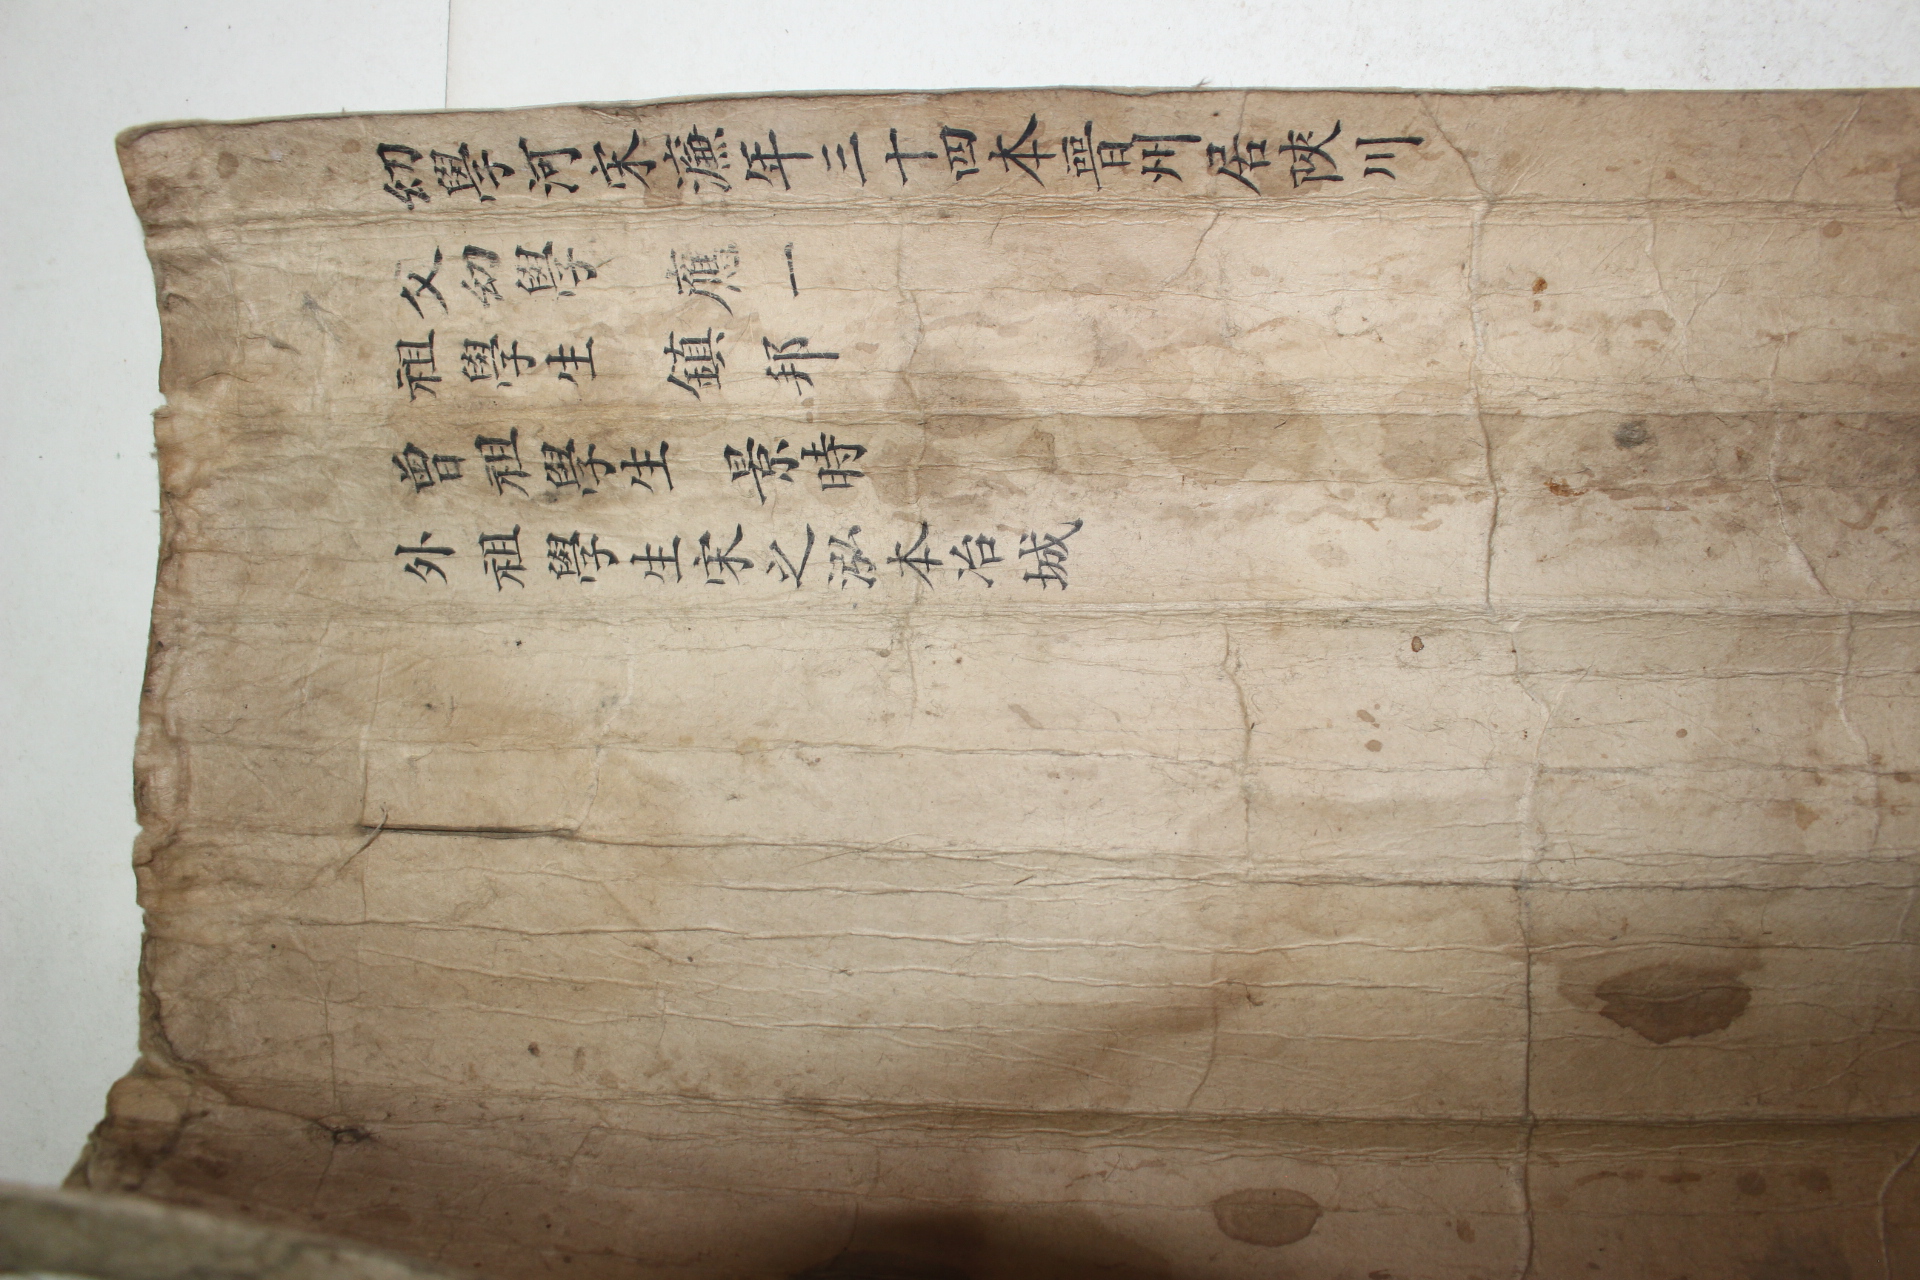 幼學河宋濂年三十四本晉州居陜川
父幼學 應一
祖學生 鎮邦
曾祖學生 景時
外祖學生宋之泓本冶城